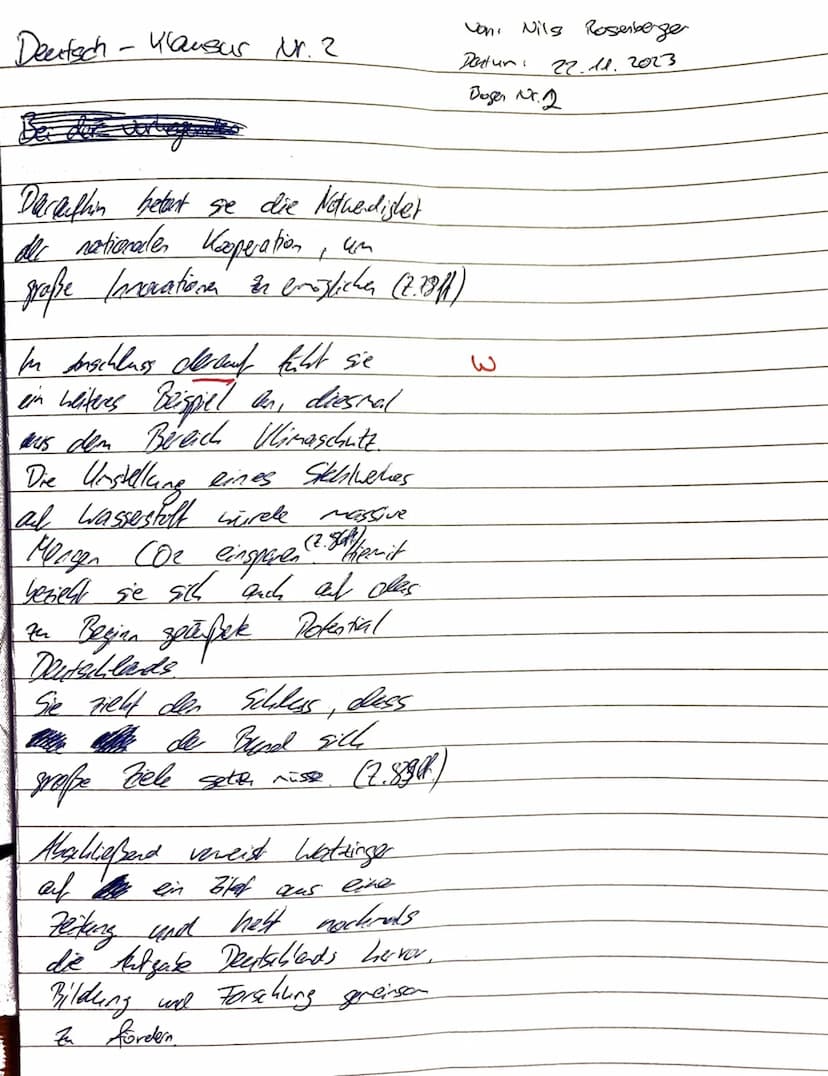 Deutsch - Klausur Nr. 2
Von: Nils Rosenberger
Datum: 22.11.2023
Bogen Nr. 2
Bei der vorliegenden
Daraufhin betont sie die Notwendigkeit
der nationalen Kooperation, um
große Innovationen zu ermöglichen
Im Anschluss darauf führt sie
W
ein weiteres Beispiel an, diesmal
aus dem Bereich Klimaschutz.
Die Umstellung eines Stahlwerkes
auf Wasserstoff würde massive
Mengen CO2 einsparen. Hiermit
bezieht sie sich auch auf das
zu Beginn geäußerte Potential
Deutschlands.
Sie zieht den Schluss, dass
der Bund sich
große Ziele setzen müsse.
Abschließend verweist Watzinger
auf ein Zitat aus einer
Zeitung und hebt nochmals
die Aufgabe Deutschlands hervor,
Bildung und Forschung gemeinsam
zu fördern.